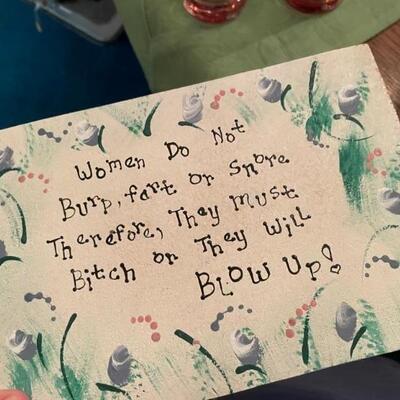 Women Do Not
Burp, fart or Snore
Therefore, They Must
Bitch or They Will
BLOW UP!